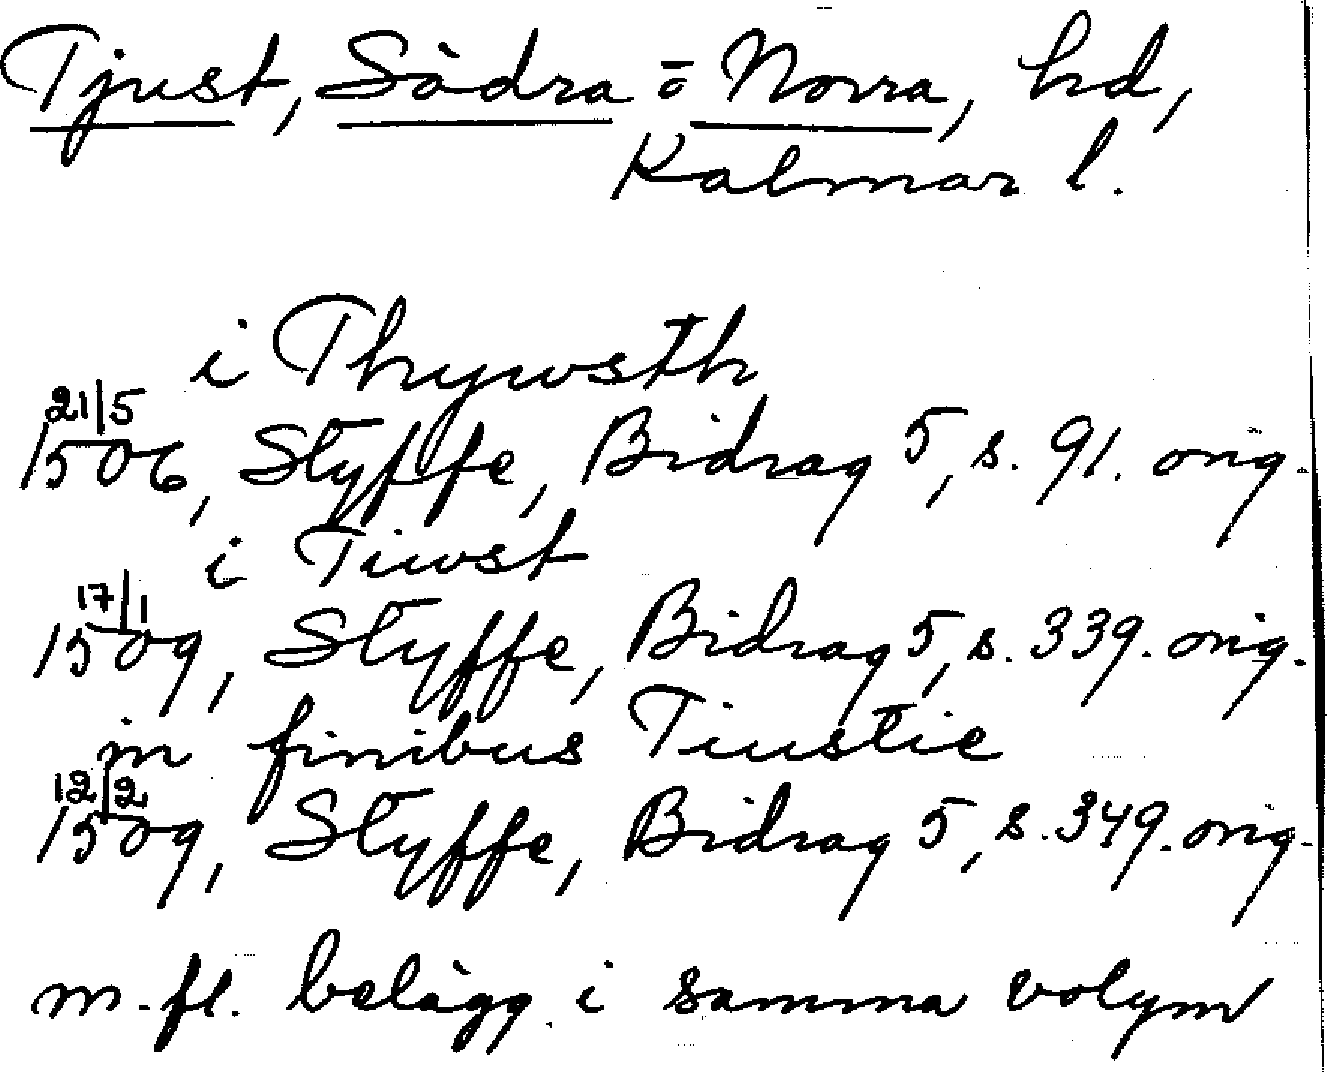 Tjust, Södra o Norra, hd,
Kalmar l.
i Thywsth
21/5
1506, Styffe, Bidrag 5, s. 91. orig.
i Tiwst
17/1
1509, Styffe, Bidrag 5, s. 339. orig.
in finibus Tiustie
12/2
1509, Styffe, Bidrag 5, s. 349. orig.
m. fl. belägg i samma volym